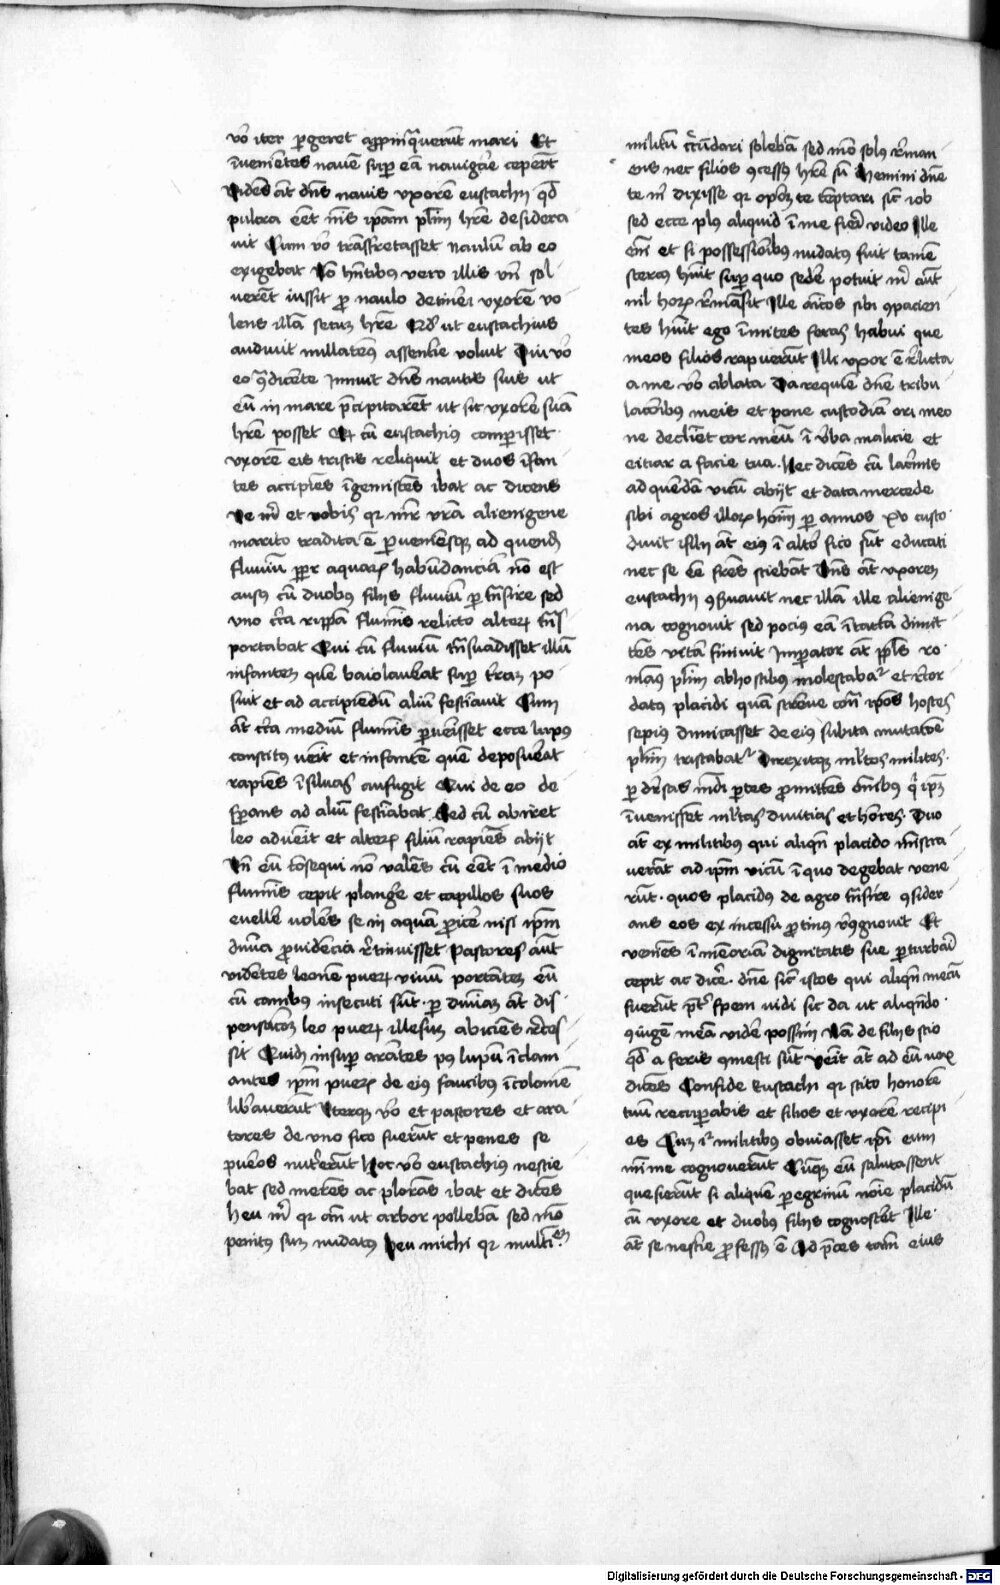 vo᷑ iter ꝑgeret appinq̈uerūt mari Et
īuenie̅tes naue̅ suꝑ ea̅ nauiga᷑e ceper̅t
Videns a̅t dn̅s nauis vxore̅ eustachij qd̅
pulcra ee̅t nīs ipa̅m pl̅im hr̅e desidera
uit Cum vo᷑ tra̅sfretasset naulu̅ ab eo
exigebat No̅ hn̅tibus vero illis vn̅ sol
uere̅t iussit ꝓ naulo detineri vxore̅ vo
lens illa̅ secuꝫ hr̅e Qd̅ ut eustachius
audiuit nullaten9 assentire voluit Qui vo᷑
eo ꝯ̈dicente Innuit dn̅s nautis suis ut
eu̅ in mare p̅cipitare̅t ut sic vxore̅ sua̅
hr̅e posset Et cu̅ eustachi9 comperisset
vxore̅ eis tristis reliquit et duos i̅fan
tes accipie̅s i̅gemisce̅s ibat ac dicens
Ve m̅ et vobis qr mr̅ vr̅a alienigene
marito tradita e̅ ꝑuenie̅sqꝫ ad quend̅
fluuiu̅ ppr̅ aquaꝝ habu̅dancia̅ no̅ est
aus9 cu̅ duobus filijs fluuiu̅ ꝑ tn̅sire sed
vno cir̅a rippa̅ flumi̅s relicto alteꝝ tn̅s
portabat Qui cu̅ fluuiu̅ tn̅suadisset illu̅
infanteꝫ que̅ baiolauerat suꝑ terraꝫ po
suit et ad accipiendu̅ aliu̅ festi̅auit Cum
a̅t cir̅a mediu̅ flumi̅s ꝑuenisset ecce lupus
concitus ve̅it et infante̅ que̅ deposuerat
rapie̅s i̅ siluas aufugit Qui de eo de
sperans ad aliu̅ festi̅abat Sed cu̅ abiret
leo adue̅it et alteꝝ filiu̅ rapie̅s abijt
Vn̅ eu̅ co̅sequi no̅ vale̅s cu̅ ee̅t i̅ medio
flumi̅s cepit plange᷑ et capillos suos
euelle᷑ vole̅s se in aqua̅ ꝓice᷑ nisi ip̅m
diui̅a ꝓuidencia r̅tinuisset Pastores aut̅
videntes leone̅ pueꝝ viuu̅ portanteꝫ eu̅
cu̅ canibus insecuti su̅t ꝑ diuina̅ a̅t dis
pensac̅oꝫ leo pueꝝ illesuꝫ abicie̅s r̅ces
sit Quida̅ insuꝑ arantes p9 lupu̅ i̅clam
antes ip̅m pueꝝ de ei9 faucibus i̅colume̅
liberaueru̅t Uterqꝫ vo᷑ et pastores et ara
tores de vno vico fueru̅t et penes se
pueros nutrieru̅t Hoc vo᷑ eustachius nescie
bat sed mere̅s ac plora̅s ibat et dice̅s
heu m̅ qr a̅n ut arbor polleba̅ sed mo̅
penitus suꝫ nudatus heu michi qr multi
militu̅ cir̅cu̅dari soleba̅ sed mo̅ sol9 r̅man
ens nec filios ꝯcess9 hr̅e su̅ Memini dn̅e
te m̅ dixisse qr oportꝫ te temptari sic̅ iob
sed ecce plus aliquid i̅ me fieri video Ille
eni̅ et si possessionibus nudat9 fuit tame̅
stercus h̅uit suꝑ quo sede᷑ potuit m̅ aut̅
nil horꝫ r̅ma̅sit Ille a̅icos sibi ꝯpacien
tes h̅uit ego i̅mites feras habui que
meos filios rapueru̅t Illi vxor e̅ r̅licta
a me vo᷑ ablata Da requie̅ dn̅e tribu
lac̅onibus meis et pone custodia̅ ori meo
ne declinet cor meu̅ i̅ v᷑ba malicie et
eiciar a facie tua Hec dice̅s cu̅ lacrimis
ad quenda̅ vicu̅ abijt et data mercede
sibi agros illoꝝ homi̅m ꝑ annos xv custo
diuit Filij a̅t ei9 i̅ alto᷑ vico su̅t educati
nec se ee̅ fr̅es sciebant Dn̅s a̅t vxorem
eustachij ꝯseruauit nec illa̅ ille alienige
na cognouit sed pocius ea̅ i̅tacta̅ dimit
te̅s vita̅ finiuit Imperator a̅t ppl̅s ro
man9 pl̅im ab hostibus molestabat᷑ et r̅cor
datus placidi qua̅ strenue cont̅ ip̅os hostes
sepius dimicasset de ei9 subita mutac̅oe̅
pl̅im tristabat᷑ Direxitqꝫ ml̅tos milites
ꝑ di̅uersas mu̅di ꝑtes ꝓmitte̅s o̅mibus q̅ ip̅m
i̅uenissent ml̅tas diuitias et ho̅res Duo
a̅t ex militibus qui aliqn̅ placido mi̅stra
uera̅t ad ip̅m vicu̅ i̅ quo degebat vene
ru̅t quos placidus de agro tn̅sire ꝯsider
ans eos ex incessu ꝓtinus r̅ꝯgnouit Et
venie̅s i̅ memoria̅ dignitatis sue ꝑturbari
cepit ac dice᷑ dn̅e sic̅ istos qui aliqn̅ mecu̅
fueru̅t pret᷑ spem vidi sic da ut aliqn̅do
ꝯiugem mea̅ vide᷑ possim Nam de filijs scio
qd̅ a feris ꝯmesti su̅t Ve̅it a̅t ad eu̅ vox
dice̅s Confide Eustachi qr cito honore̅
tuu̅ recuperabis et filios et vxore̅ recipi
es Cuꝫ i᷑ militibus obuiasset ip̅i eum
mi̅me cognoueru̅t Cu̅qꝫ eu̅ salutassent
quesieru̅t si alique̅ ꝑegrinu̅ no̅ie placidu̅
cu̅ vxore et duobus filijs cognosce̅t Ille
a̅t se nescire ꝓfess9 e̅ Ad p̅ces tame̅ eius
Digitalisierung gefördert durch die Deutsche Forschungsgemeinschaft - DFG